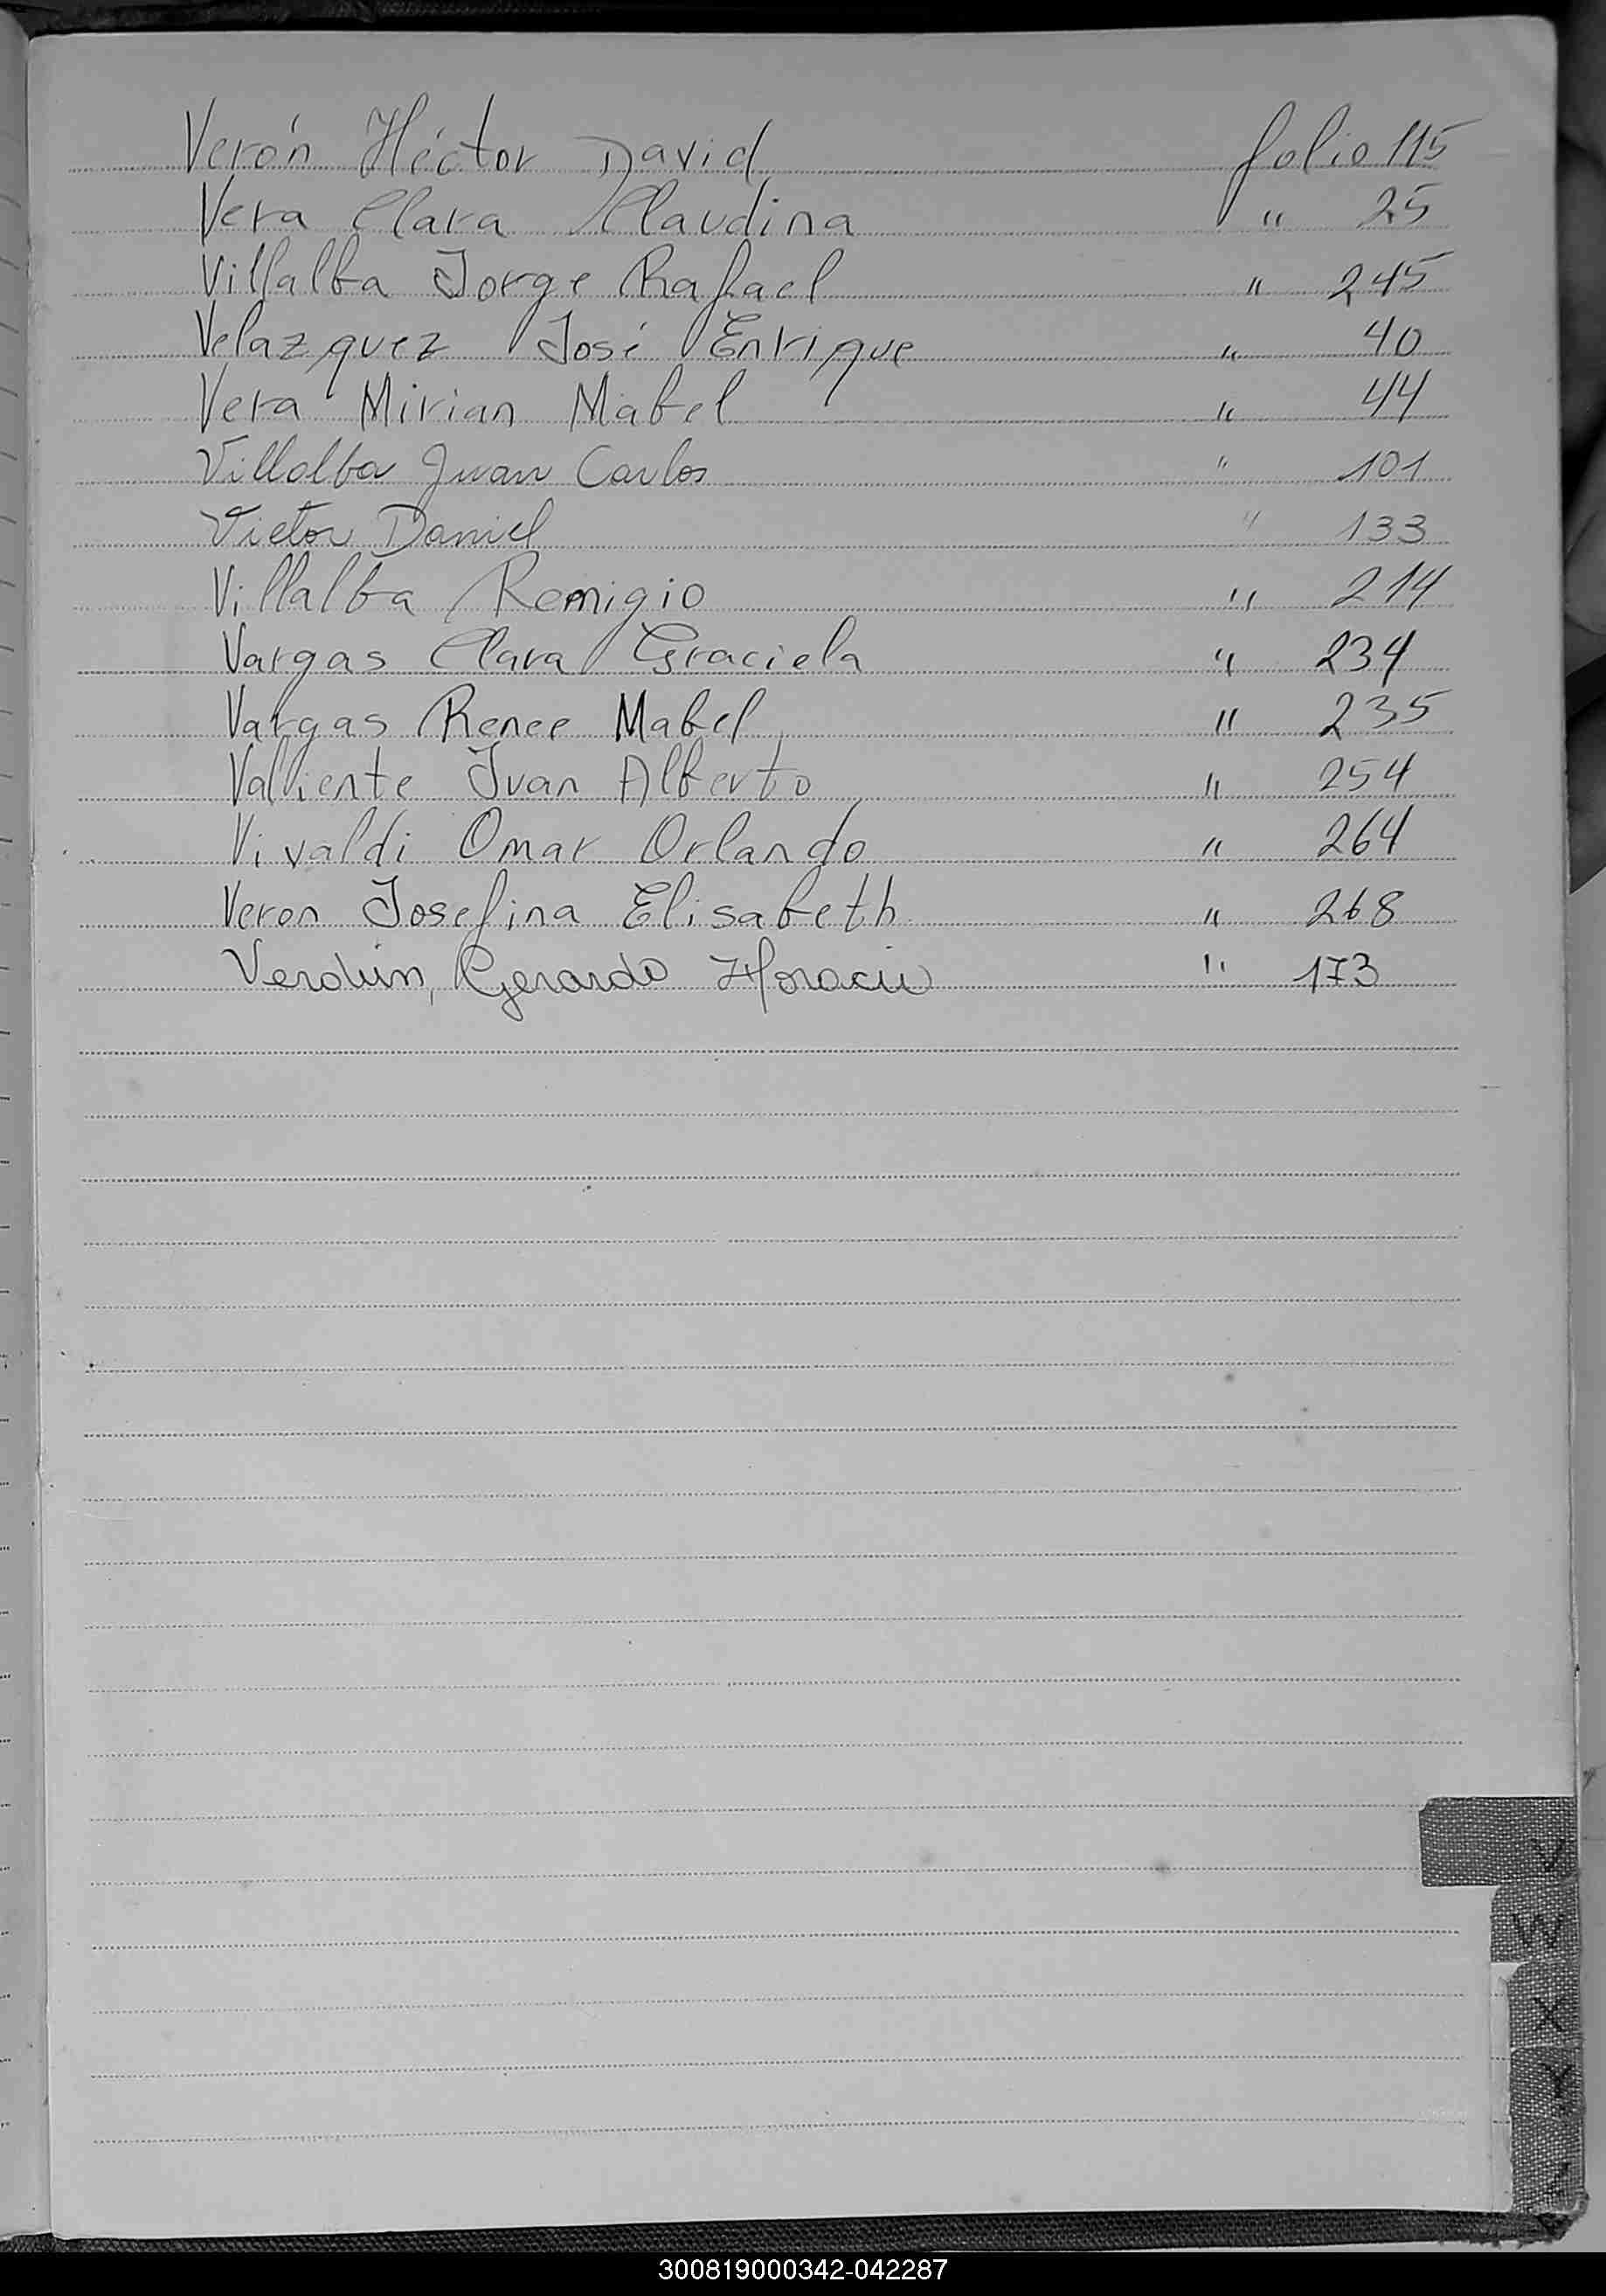 Verón Héctor David folio 115
Vera Clara Claudina " 25
Villalba Jorge Rafael " 245
Velazquez José Enrique " 40
Vera Mirian Mabel " 44
Villalba Juan Carlos " 101
Victor Daniel " 133
Villalba Remigio " 214
Vargas Clara Graciela " 234
Vargas Renee Mabel " 235
Valiente Juan Alberto " 254
Vivaldi Omar Orlando " 264
Veron Josefina Elisabeth " 268
Verdún, Gerardo Horacio " 173
V
W
X
Y
300819000342-042287